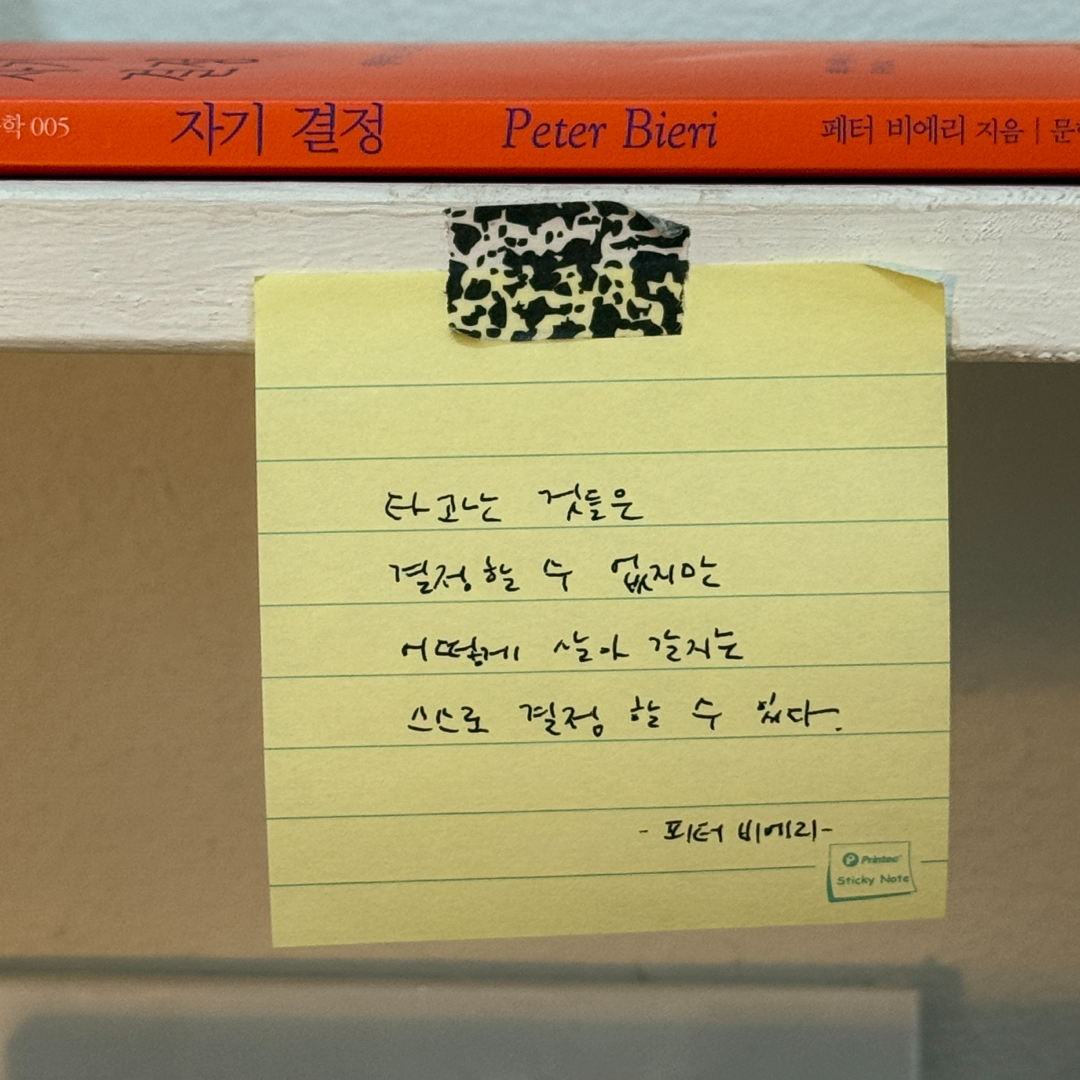 학 005 자기 결정 Peter Bieri 페터 비에리 지음 | 문
타고난 것들은
결정할 수 없지만
어떻게 살아 갈지는
스스로 결정 할 수 있다.
- 피터 비에리-
Printec
Sticky Note